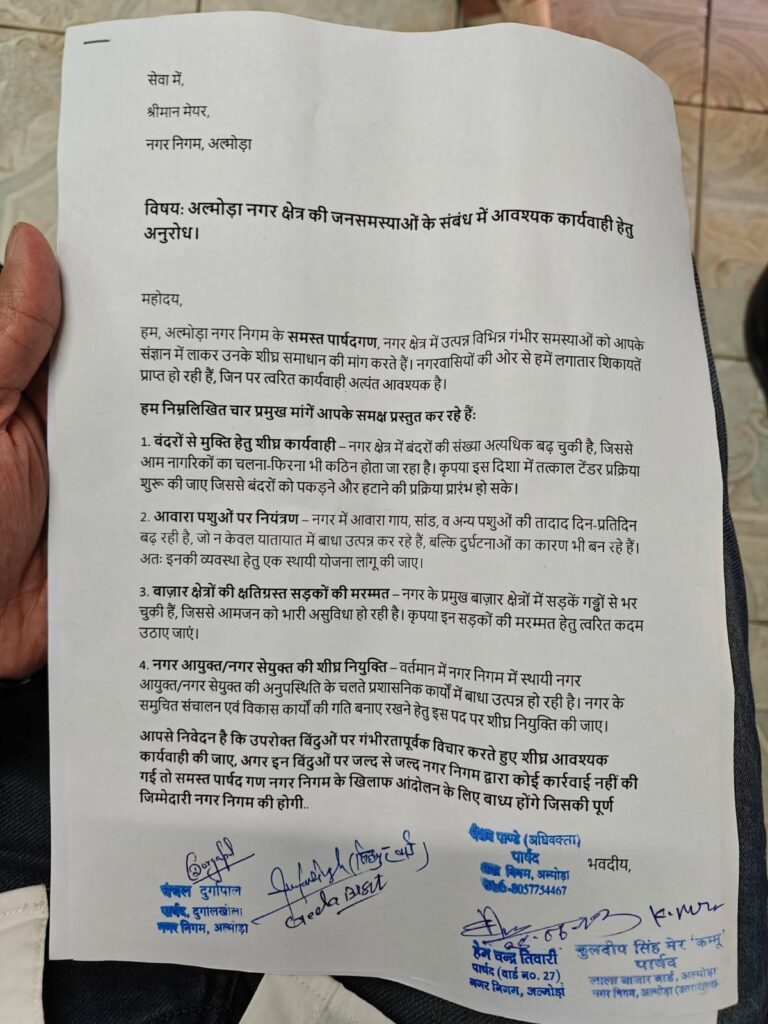 सेवा में,
श्रीमान मेयर,
नगर निगम, अल्मोड़ा
विषय: अल्मोड़ा नगर क्षेत्र की जनसमस्याओं के संबंध में आवश्यक कार्यवाही हेतु
अनुरोध।
महोदय,
हम, अल्मोड़ा नगर निगम के समस्त पार्षदगण, नगर क्षेत्र में उत्पन्न विभिन्न गंभीर समस्याओं को आपके
संज्ञान में लाकर उनके शीघ्र समाधान की मांग करते हैं। नगरवासियों की ओर से हमें लगातार शिकायतें
प्राप्त हो रही हैं, जिन पर त्वरित कार्यवाही अत्यंत आवश्यक है।
हम निम्नलिखित चार प्रमुख मांगें आपके समक्ष प्रस्तुत कर रहे हैं:
1. बंदरों से मुक्ति हेतु शीघ्र कार्यवाही – नगर क्षेत्र में बंदरों की संख्या अत्यधिक बढ़ चुकी है, जिससे
आम नागरिकों का चलना-फिरना भी कठिन होता जा रहा है। कृपया इस दिशा में तत्काल टेंडर प्रक्रिया
शुरू की जाए जिससे बंदरों को पकड़ने और हटाने की प्रक्रिया प्रारंभ हो सके।
2. आवारा पशुओं पर नियंत्रण – नगर में आवारा गाय, सांड, व अन्य पशुओं की तादाद दिन-प्रतिदिन
बढ़ रही है, जो न केवल यातायात में बाधा उत्पन्न कर रहे हैं, बल्कि दुर्घटनाओं का कारण भी बन रहे हैं।
अतः इनकी व्यवस्था हेतु एक स्थायी योजना लागू की जाए।
3. बाज़ार क्षेत्रों की क्षतिग्रस्त सड़कों की मरम्मत – नगर के प्रमुख बाज़ार क्षेत्रों में सड़कें गड्ढों से भर
चुकी हैं, जिससे आमजन को भारी असुविधा हो रही है। कृपया इन सड़कों की मरम्मत हेतु त्वरित कदम
उठाए जाएं।
4. नगर आयुक्त/नगर सेयुक्त की शीघ्र नियुक्ति – वर्तमान में नगर निगम में स्थायी नगर
आयुक्त/नगर सेयुक्त की अनुपस्थिति के चलते प्रशासनिक कार्यों में बाधा उत्पन्न हो रही है। नगर के
समुचित संचालन एवं विकास कार्यों की गति बनाए रखने हेतु इस पद पर शीघ्र नियुक्ति की जाए।
आपसे निवेदन है कि उपरोक्त बिंदुओं पर गंभीरतापूर्वक विचार करते हुए शीघ्र आवश्यक
कार्यवाही की जाए, अगर इन बिंदुओं पर जल्द से जल्द नगर निगम द्वारा कोई कार्रवाई नहीं की
गई तो समस्त पार्षद गण नगर निगम के खिलाफ आंदोलन के लिए बाध्य होंगे जिसकी पूर्ण
जिम्मेदारी नगर निगम की होगी..
भवदीय,
पाण्डे (अधिवक्ता)
पार्षद
निगम, अल्मोड़ा
8057754467
दुर्गापाल
पार्षद, दुगालखोला
नगर निगम, अल्मोड़ा
Geeta
हेम चन्द्र तिवारी
पार्षद (वार्ड no. 27)
नगर निगम, अल्मोड़ा
कुलदीप सिंह मेर 'कम्मू'
पार्षद
लाला बाजार वार्ड, अल्मोड़ा
नगर निगम, अल्मोड़ा (उत्तराखण्ड)